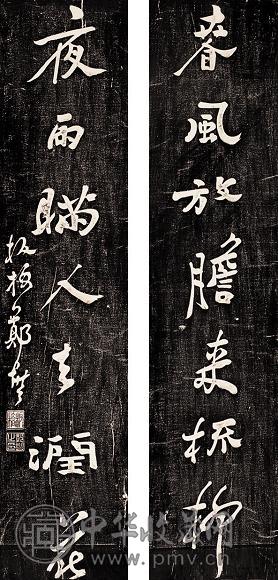 春風放膽来梳柳
夜雨瞞人去潤花
板橋鄭燮
中华收藏网
www.pmv.cn